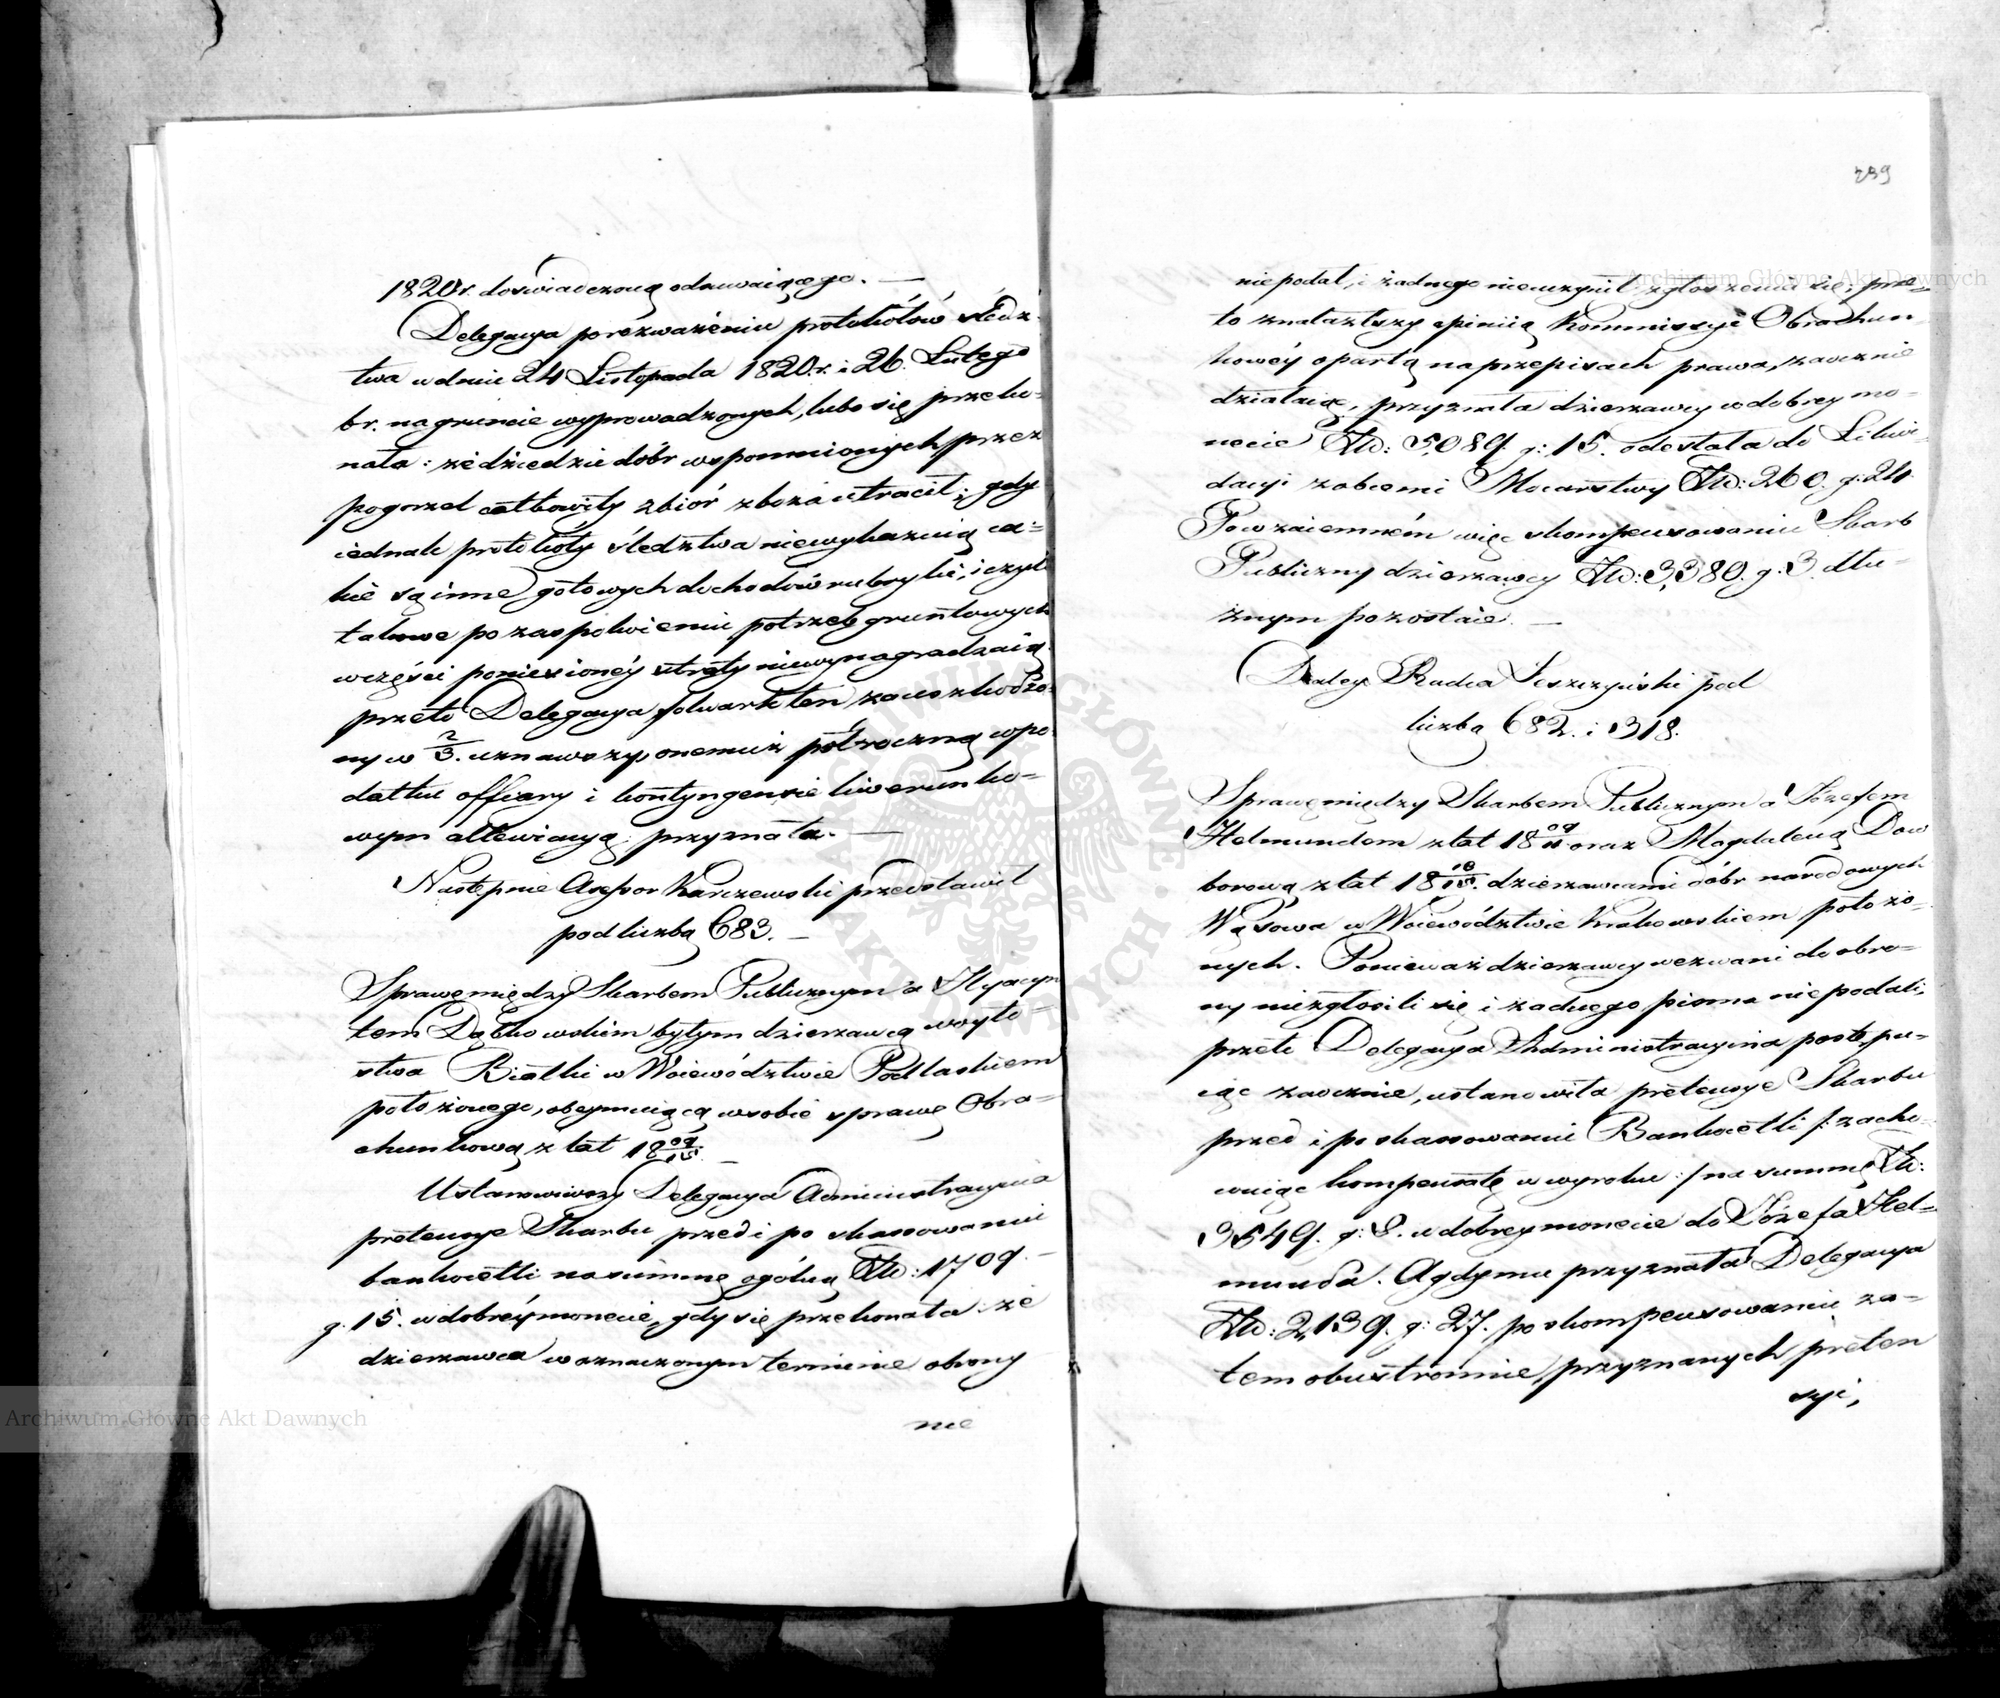 1820 r. doświadczoną odzuwaiącego. —
Delegacya po rozważeniu protokółów śledz-
twa w dniu 24 Listopada 1820. r. i 26. Lutego
b r. na gruncie wyprowadzonych, lubo się przeko-
nała: że dziedzic dóbr wspomnionych przez
pogorzel całkowity zbiór zboża utracił; gdy
iednak protokóły śledztwa niewykazuią ia-
kie są inne gotowych dochodów rubryki, i czyli
takowe po zaspokoieniu potrzeb gruntowych
w części poniesioney straty niewynagradzaią.
przeto Delegacya folwark ten za uszkodzo-
ny w 2/3. uznawszy, onemuż półroczną w po-
datku offiary i kontyngensie liwerunko-
wym allewiacyą przyznała. —
Następnie Assessor Karczewski przedstawił
pod liczbą 683. —
Sprawę między Skarbem Publicznym a Hyacyn
tem Dątkowskim byłym dzierżawcą wóyto-
stwa Białki w Woiewództwie Podlaskiem
położonego, obeymuiącą w sobie sprawę Obra-
chunkową z lat 18 09/15. —
Ustanowiwszy Delegacya Administracyina
pretensye Skarbu przed i po skassowaniu
bankocetli na summę ogólną Złt: 1709. —
g. 15. w dobréy monecie, gdy się przekonała: że
dzierżawca w oznaczonym terminie obrony
nie
239
nie podał, i żadnego nieuczynił zgłoszenia się, prze-
to znalazłszy opiniią Kommissyi Obrachun-
kowéy opartą na przepisach prawa, zaocznie
działaiąc, przyznała dzierżawcy w dobrey mo-
necie Złt: 5,089. g: 15. odesłała do Likwi-
dacyi z obcemi Mocarstwy Złt: 260. g. 24.
Po wzaiemném więc skompensowaniu Skarb
Publiczny dzierżawcy Złt: 3,380. g. 3. dłu-
żnym pozostaie. —
Daley Radca Leszczyński pod
liczbą 682. i 318.
Sprawę między Skarbem Publicznym a Józefem
Helmundem z lat 18 09/11 oraz Magdaleną Dow
borową z lat 18 10/15. dzierżawcami dóbr narodowych
Wąsowa w Woiewództwie Krakowskiem położo-
nych. Ponieważ dzierżawcy wezwani do obro-
ny niezgłosili się i żadnego pisma nie podali,
przeto Delegacya Administracyina postępu-
iąc zaocznie, ustanowiła pretensye Skarbu
przed i po skassowaniu Bankocetli /: zacho-
wuiąc kompensatę w wyroku :/ na summę Złt:
3549. g: 8. w dobrey monecie do Józefa Hel-
munda. A gdy mu przyznała Delegacya
Złt: 2,139. g: 27. po skompensowaniu za-
tem obustronnie przyznanych preten
syi,
Archiwum Główne Akt Dawnych
Archiwum Główne Akt Dawnych
ARCHIWUM GŁÓWNE AKT DAWNYCH